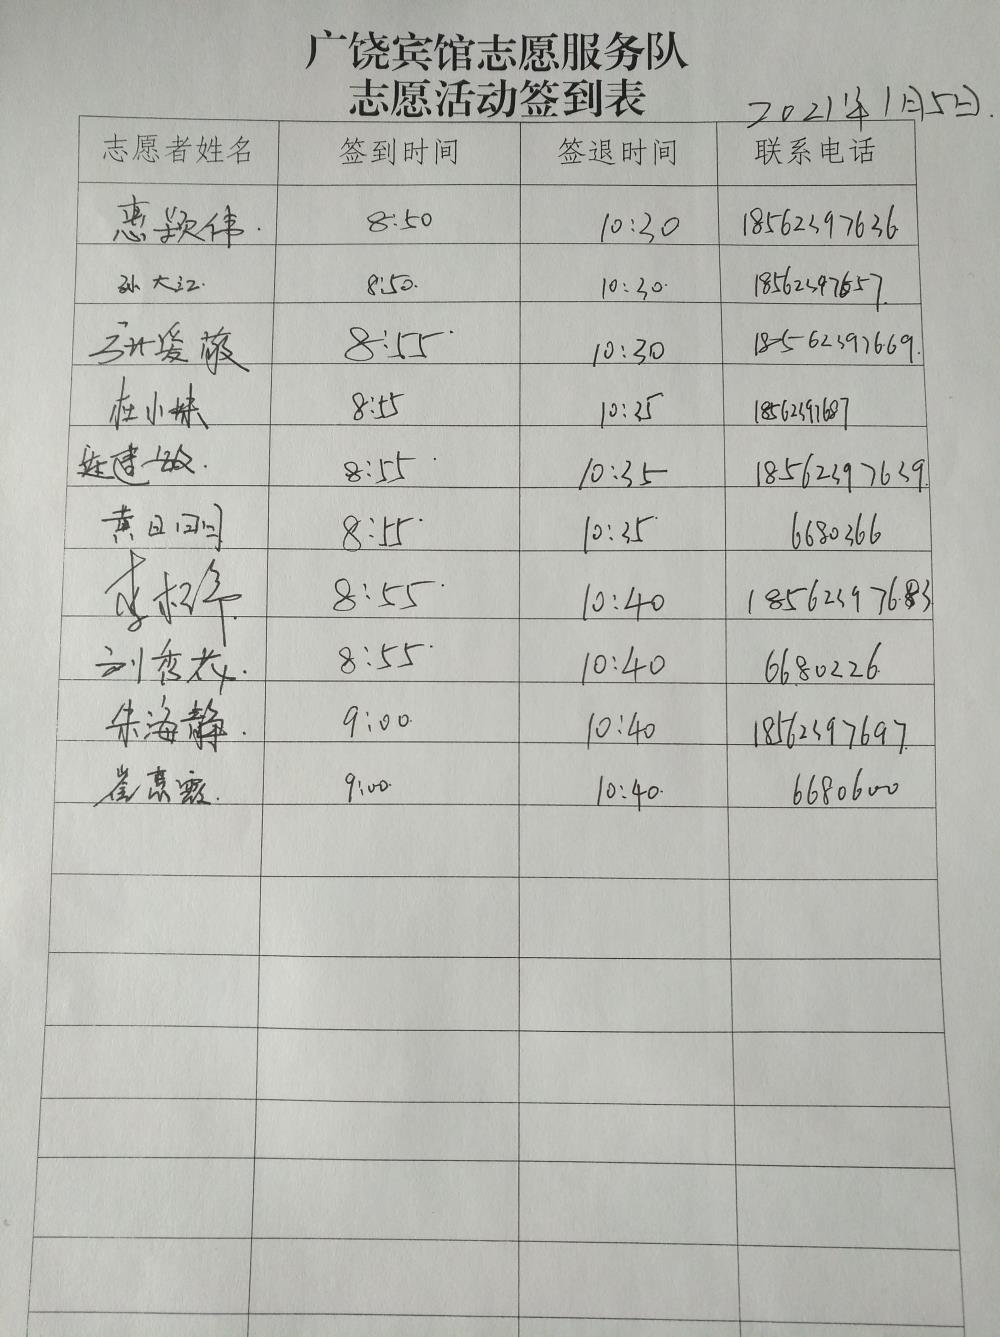 广饶宾馆志愿服务队
志愿活动签到表
2021年1月5日.
志愿者姓名 签到时间 签退时间 联系电话
惠颖伟. 8:50 10:30 18562397636
孙大江. 8:50. 10:30. 18562397657
8:55 10:30 18562397669.
小妹 8:55 10:35 18562397687
建敏. 8:55 10:35 18562397639.
黄日闩 8:55 10:35 6680366
李 8:55 10:40 18562397683
刘秀花. 8:55 10:40 6680226.
朱海静. 9:00 10:40 18562397697.
崔惠霞. 9:00. 10:40. 6680600